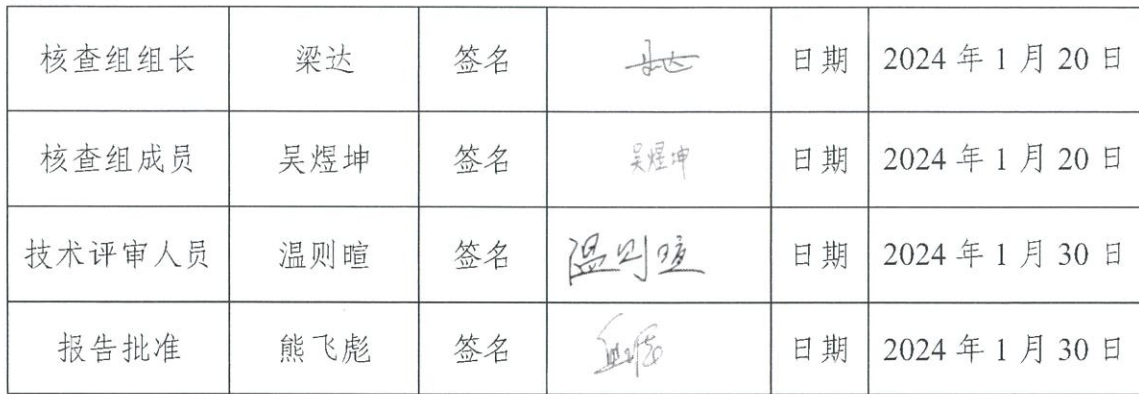 核查组组长 梁达 签名 梁达 日期 2024年1月20日
核查组成员 吴煜坤 签名 吴煜坤 日期 2024年1月20日
技术评审人员 温则暄 签名 温则暄 日期 2024年1月30日
报告批准 熊飞彪 签名 日期 2024年1月30日